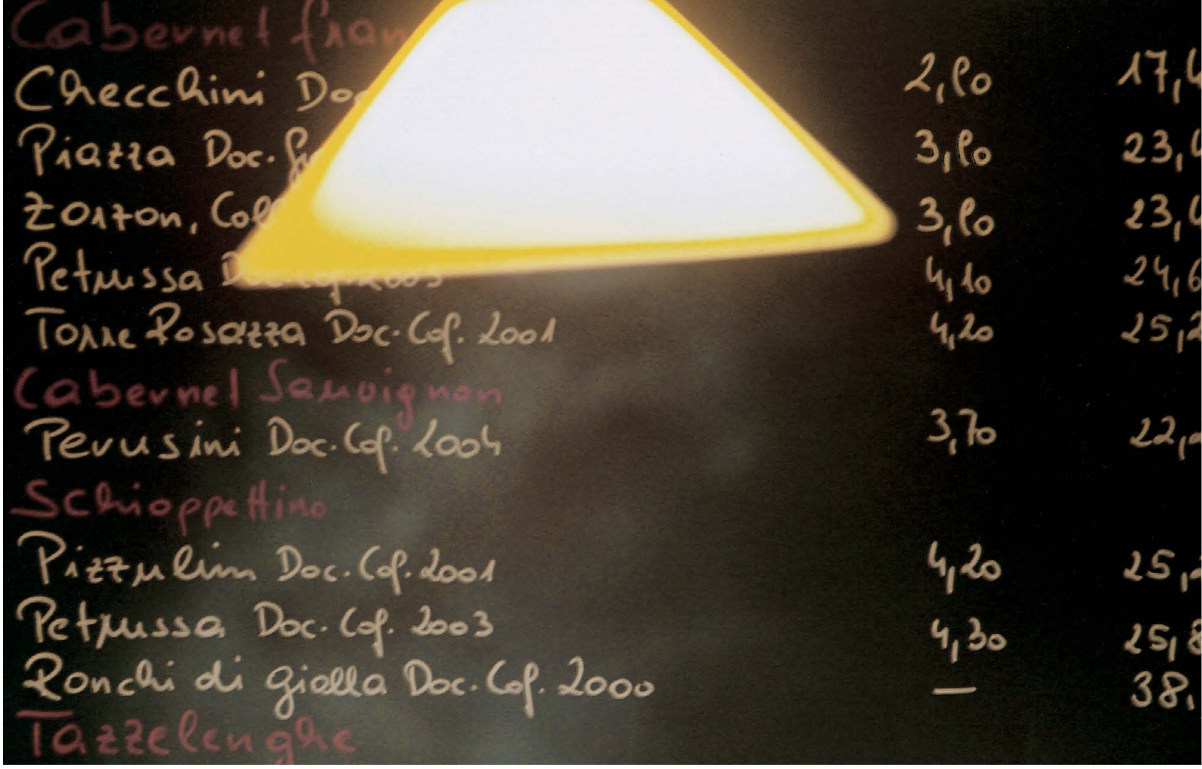 Cabernet fran
Checchini Doc 2,80 17,
Piazza Doc. 3,80 23,
Zorzon, Col 3,80 23,
Petrussa 2003 4,10 24,6
Torre Rosazza Doc. Cof. 2001 4,20 25,2
Cabernet Sauvignon
Perusini Doc. Cof. 2004 3,70 22,
Schioppettino
Pizzulin Doc. Cof. 2001 4,20 25,
Petrussa Doc. Cof. 2003 4,30 25,8
Ronchi di gialla Doc. Cof. 2000 — 38,
Tazzelenghe